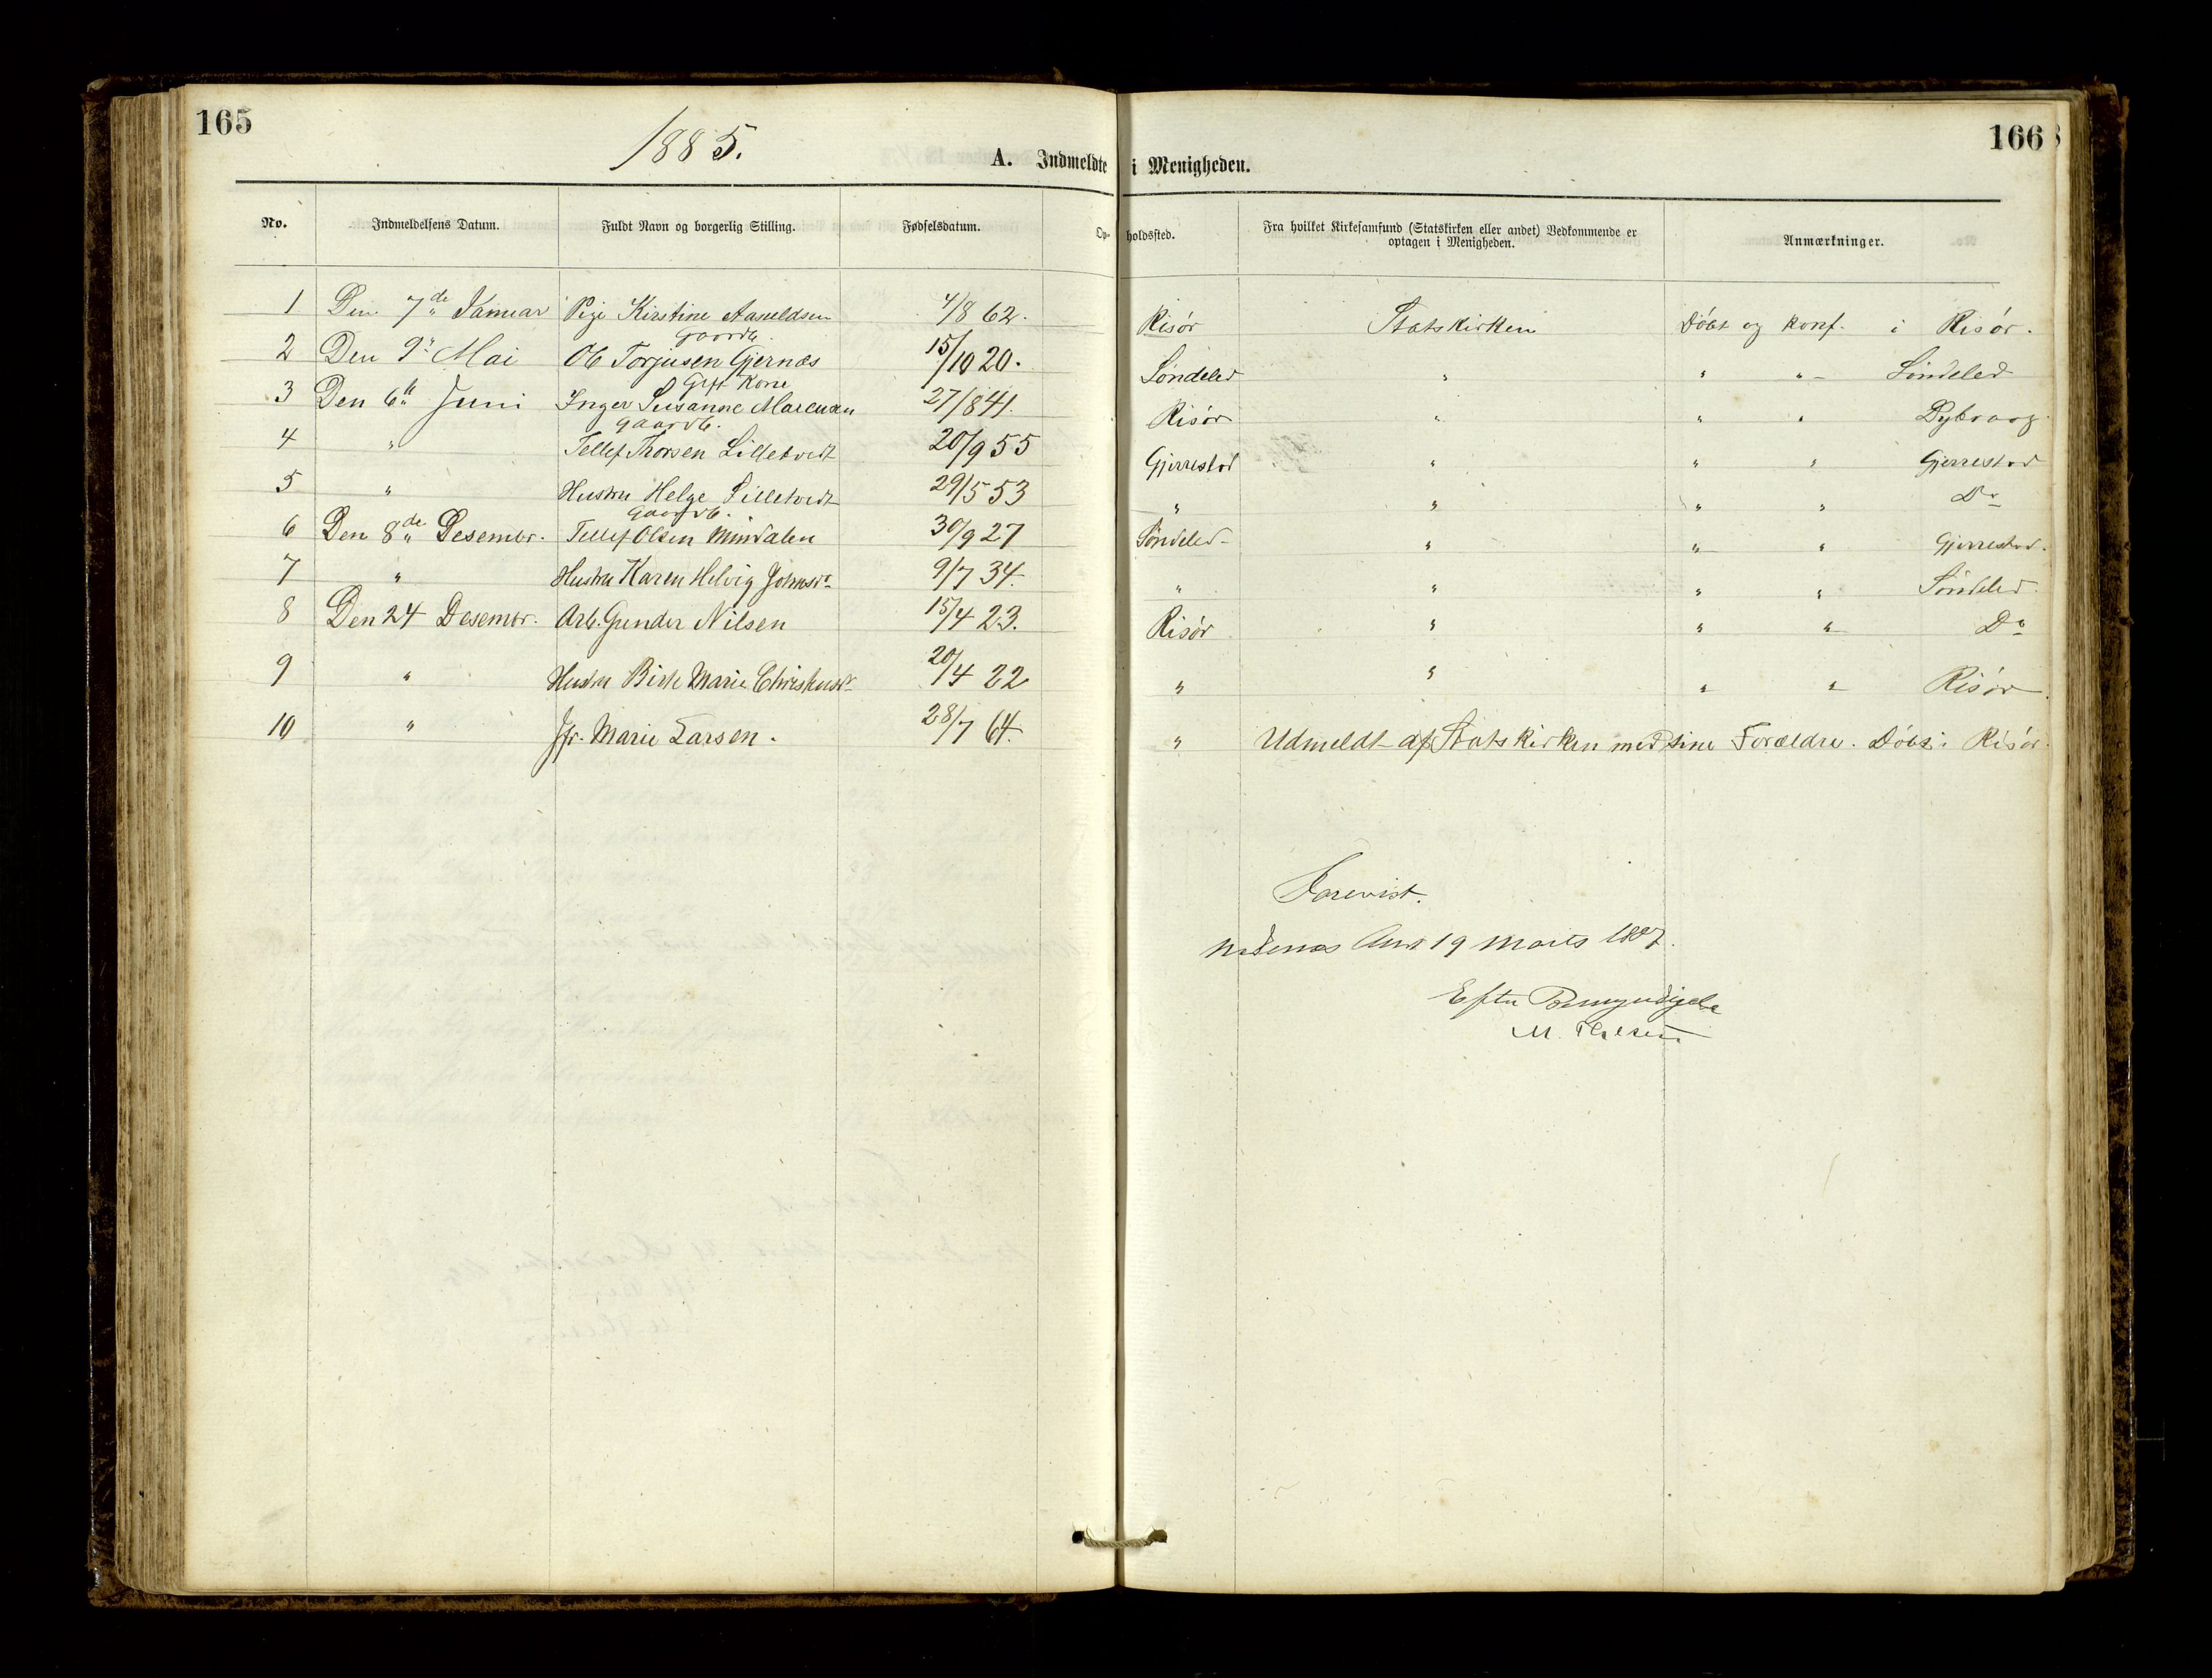 165
166
1885.
A. Indmeldte i Menigheden.
No. Indmeldelsens Datum. Fuldt Navn og borgerlig Stilling. Fødselsdatum. Op- holdssted. Fra hvilket Kirkesamfund (Statskirken eller andet) Vedkommende er optagen i Menigheden. Anmærkninger.
1 Den 7de Januar Pige Kirstine Aasueldsen 4/8 62. Risör Statskirken Döbt og konf. i Risör.
Gaardb.
2 Den 9" Mai Ole Torjusen Gjernæs 15/10 20. Söndeled " " " Söndeled
Gift Kone
3 Den 6te Juni Inger Susanne Marcussen 27/8 41. Risör " " " Dybvaag
Gaardb.
4 " Tellef Thorsen Lilletvedt 20/9 55 Gjerrestad " " " Gjerrestad
5 " Hustru Helge Lilletvedt 29/5 53 " " " " Do
Gaardb.
6 Den 8de Desembr. Tellef Olsen Mindalen 30/9 27 Söndeled " " " Gjerrestad.
7 " Hustru Karen Helvig Johnsdr 9/7 34. " " " " Söndeled
8 Den 24 Desembr. Arb. Gunder Nilsen 15/4 23. Risör " " " Do
9 " Hustru Birte Marie Christensdr 20/4 22 " " " " Risör
10 " Jfr. Marie Larsen. 28/7 64. " Udmeldt af Statskirken med sine Forældre. Döbt i Risör.
Forevist.
Nedenæs Amt 19 Marts 1887.
Efter Bemyndigelse
M.